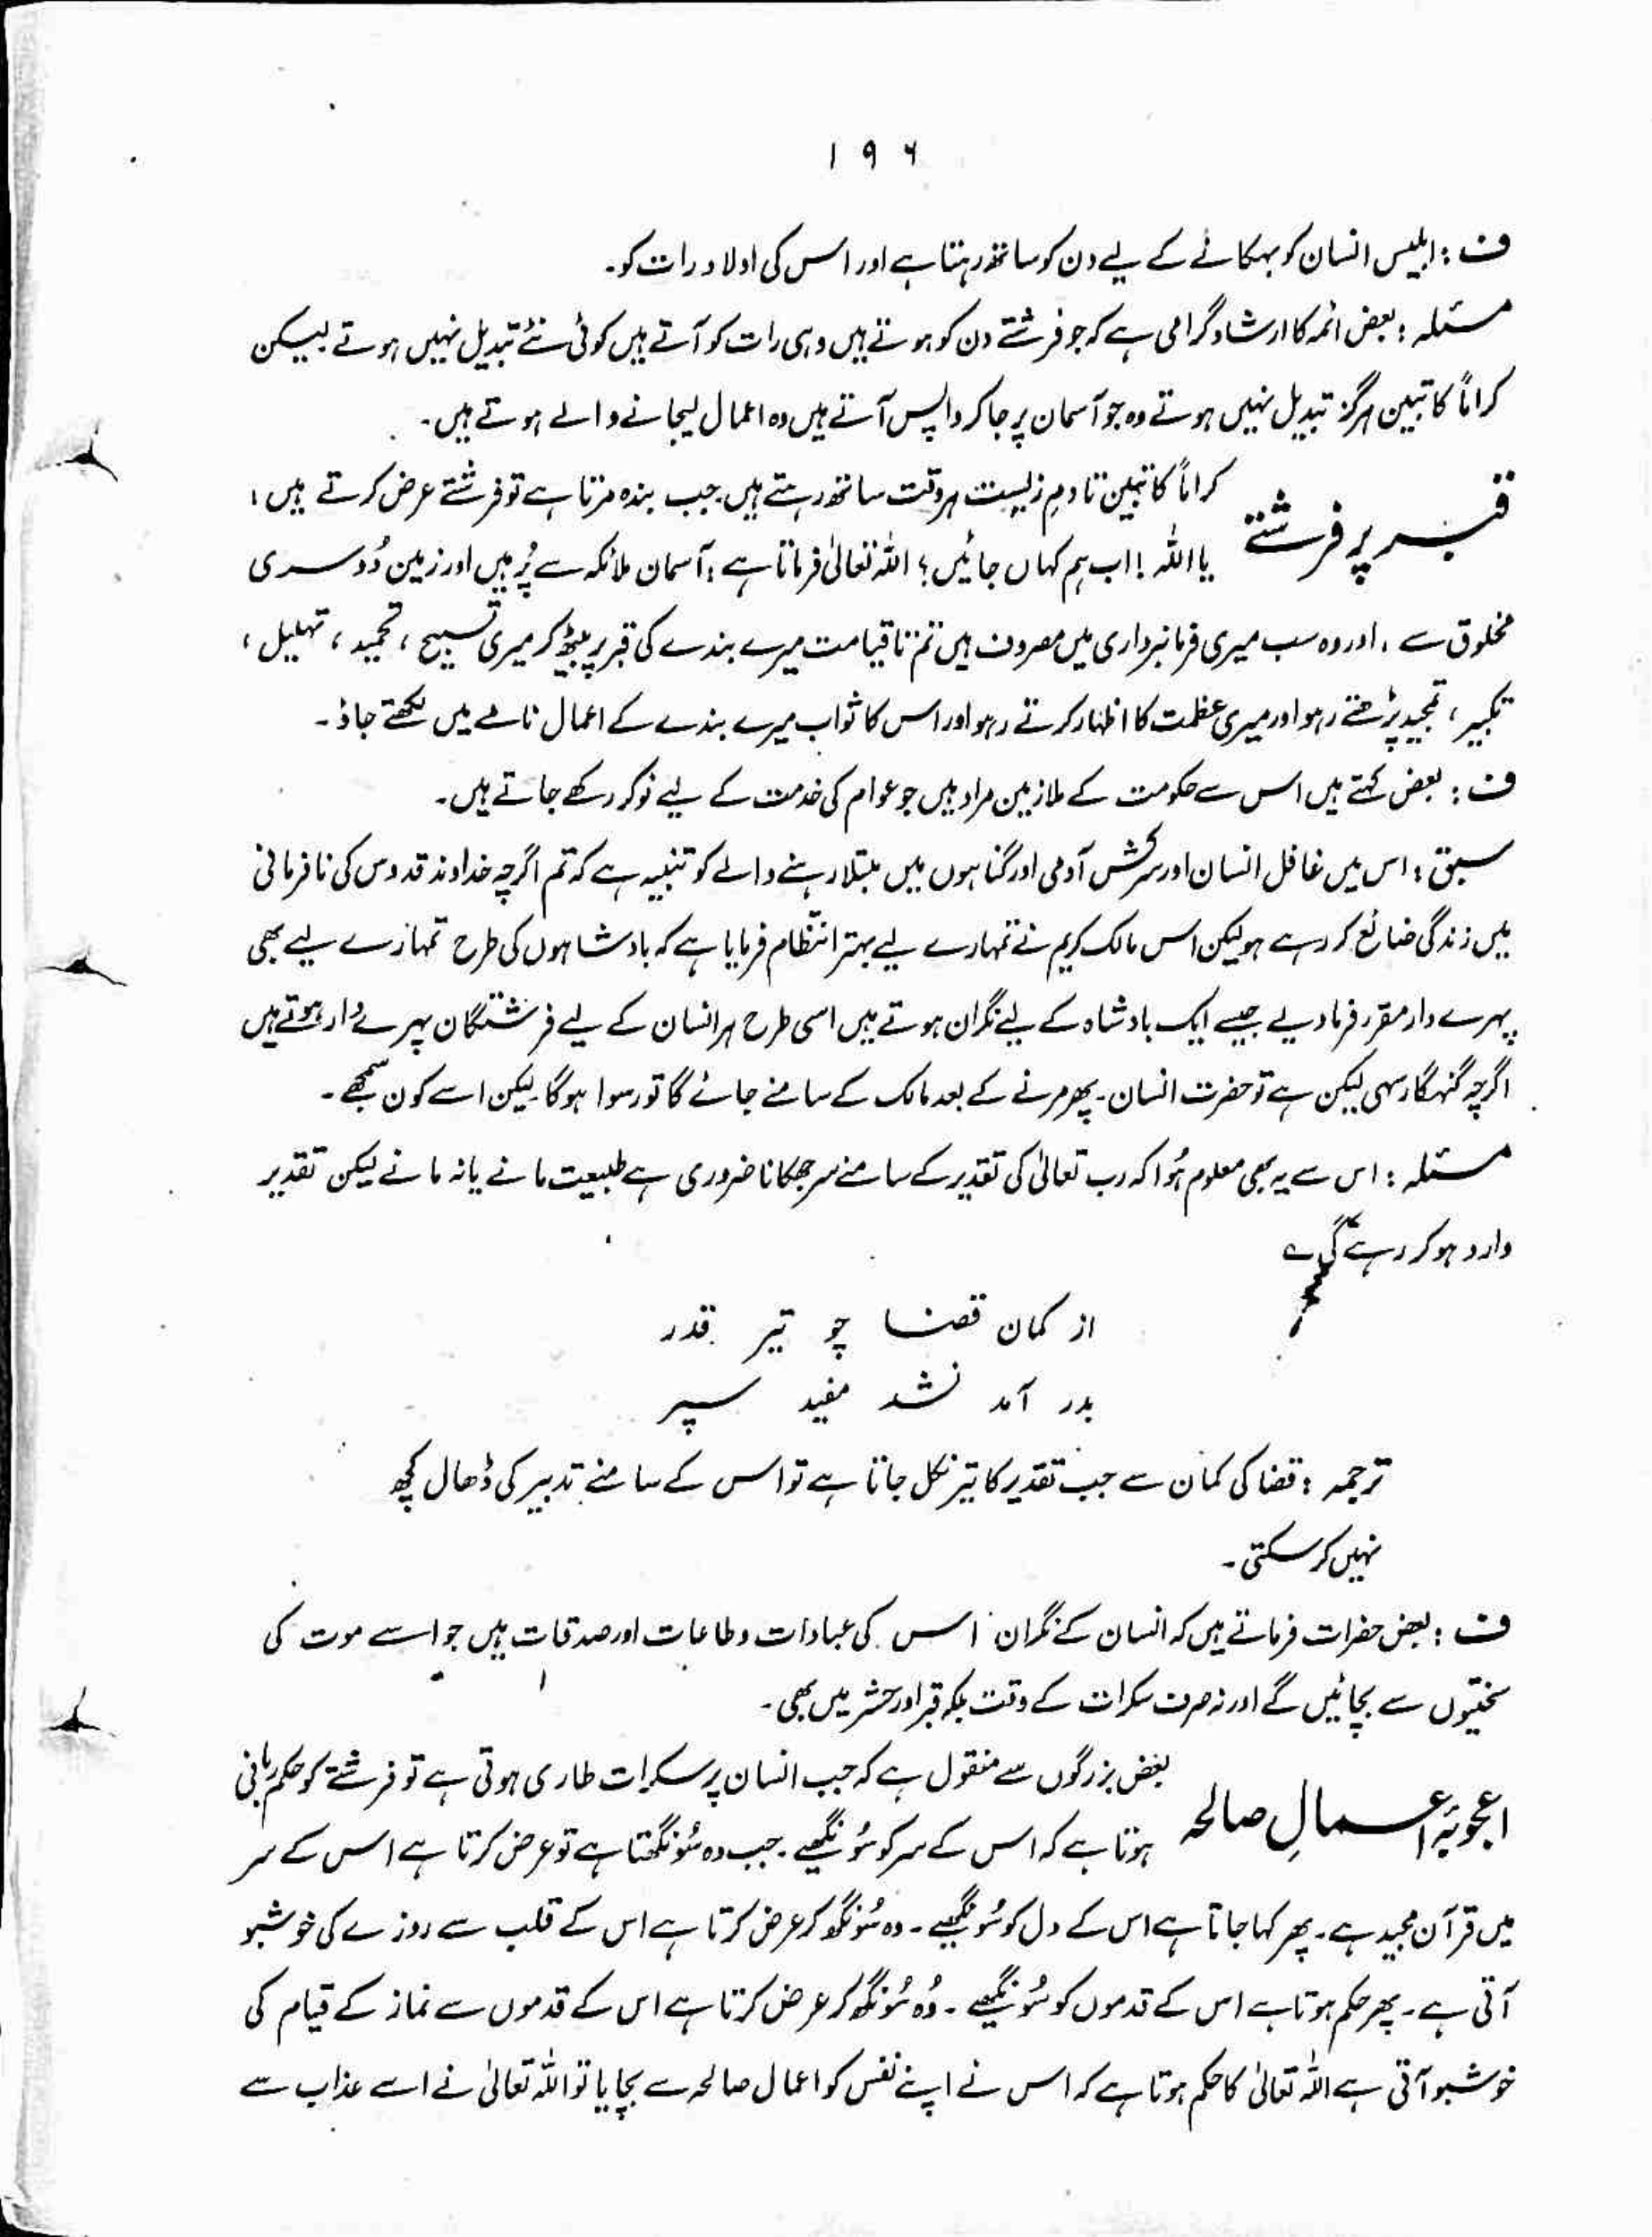 ۱۹۶
ف : ابلیس انسان کو بہکانے کے لیے دن کو ساتھ رہتا ہے اور اس کی اولاد رات کو۔
مسئلہ : بعض ائمہ کا ارشاد گرامی ہے کہ جو فرشتے دن کو ہوتے ہیں وہی رات کو آتے ہیں کوئی نئے تبدیل نہیں ہوتے لیکن
کراماً کاتبین ہرگز تبدیل نہیں ہوتے وہ جو آسمان پر جا کر واپس آتے ہیں وہ اعمال لیجانے والے ہوتے ہیں۔
قبر پر فرشتے
کراماً کاتبین تا دمِ زیست ہر وقت ساتھ رہتے ہیں جب بندہ مرتا ہے تو فرشتے عرض کرتے ہیں ،
یا اللہ ! اب ہم کہاں جائیں ؟ اللہ تعالیٰ فرماتا ہے : آسمان ملائکہ سے پُر ہیں اور زمین دُوسری
مخلوق سے ، اور وہ سب میری فرمانبرداری میں مصروف ہیں تم تا قیامت میرے بندے کی قبر پر بیٹھ کر میری تسبیح ، تحمید ، تہلیل ،
تکبیر ، تمجید پڑھتے رہو اور میری عظمت کا اظہار کرتے رہو اور اس کا ثواب میرے بندے کے اعمال نامے میں لکھتے جاؤ ۔
ف : بعض کہتے ہیں اس سے حکومت کے ملازمین مراد ہیں جو عوام کی خدمت کے لیے نوکر رکھے جاتے ہیں۔
سبق : اس میں غافل انسان اور سرکش آدمی اور گناہوں میں مبتلا رہنے والے کو تنبیہ ہے کہ تم اگرچہ خداوند قدوس کی نافرمانی
میں زندگی ضائع کر رہے ہو لیکن اس مالک کریم نے تمہارے لیے بہتر انتظام فرمایا ہے کہ بادشاہوں کی طرح تمہارے لیے بھی
پہرے دار مقرر فرما دیے جیسے ایک بادشاہ کے لیے نگران ہوتے ہیں اسی طرح ہر انسان کے لیے فرشتگان پہرے دار ہوتے ہیں
اگرچہ گنہگار سہی لیکن ہے تو حضرت انسان ۔ پھر مرنے کے بعد مالک کے سامنے جائے گا تو رسوا ہوگا لیکن اسے کون سمجھے ۔
مسئلہ : اس سے یہ بھی معلوم ہُوا کہ رب تعالیٰ کی تقدیر کے سامنے سر جھکانا ضروری ہے طبیعت مانے یا نہ مانے لیکن تقدیر
وارد ہو کر رہے گی ؎
از کمان قضا چو تیر قدر
بدر آمد نشد مفید سپر
ترجمہ : قضا کی کمان سے جب تقدیر کا تیر نکل جاتا ہے تو اس کے سامنے تدبیر کی ڈھال کچھ
نہیں کر سکتی ۔
ف : بعض حضرات فرماتے ہیں کہ انسان کے نگران اس کی عبادات و طاعات اور صدقات ہیں جو اسے موت کی
سختیوں سے بچائیں گے اور نہ صرف سکرات کے وقت بلکہ قبر اور حشر میں بھی ۔
اعجوبۂ اعمالِ صالحہ
بعض بزرگوں سے منقول ہے کہ جب انسان پر سکرات طاری ہوتی ہے تو فرشتے کو حکم ربانی
ہوتا ہے کہ اس کے سر کو سُونگھیے ۔ جب وہ سُونگھتا ہے تو عرض کرتا ہے اس کے سر
میں قرآن مجید ہے ۔ پھر کہا جاتا ہے اس کے دل کو سُونگھیے ۔ وہ سُونگھ کر عرض کرتا ہے اس کے قلب سے روزے کی خوشبو
آتی ہے ۔ پھر حکم ہوتا ہے اس کے قدموں کو سُونگھیے ۔ وُہ سُونگھ کر عرض کرتا ہے اس کے قدموں سے نماز کے قیام کی
خوشبو آتی ہے اللہ تعالیٰ کا حکم ہوتا ہے کہ اس نے اپنے نفس کو اعمال صالحہ سے بچایا تو اللہ تعالیٰ نے اسے عذاب سے